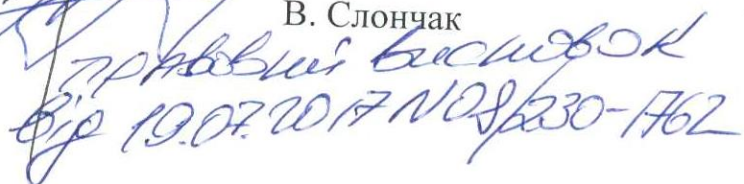 В. Слончак
правовий висновок
від 19.07.2017 N08/230-1762